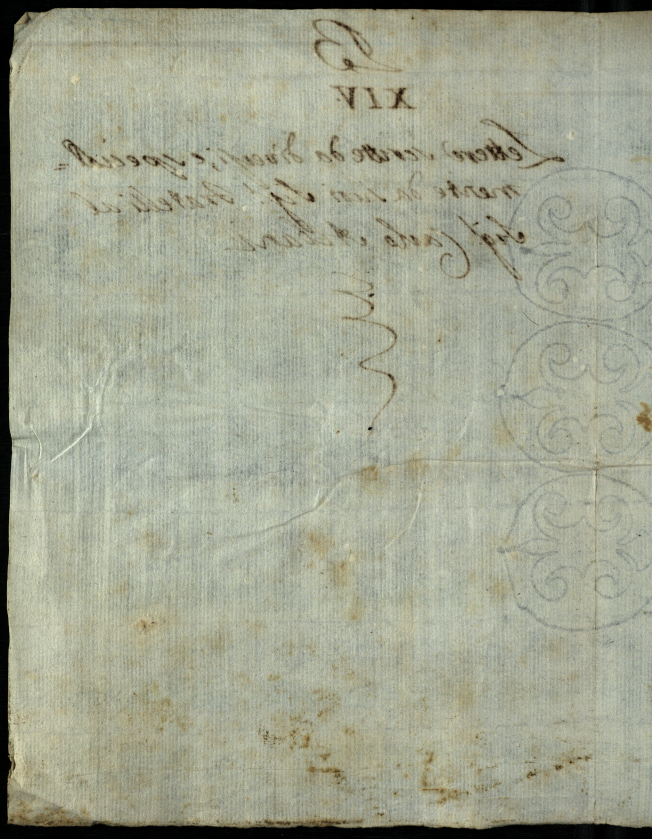 XIV
Lettere scritte da diversi, e special-
mente da suoi Sig.i Fratelli al
Sig.r Carlo